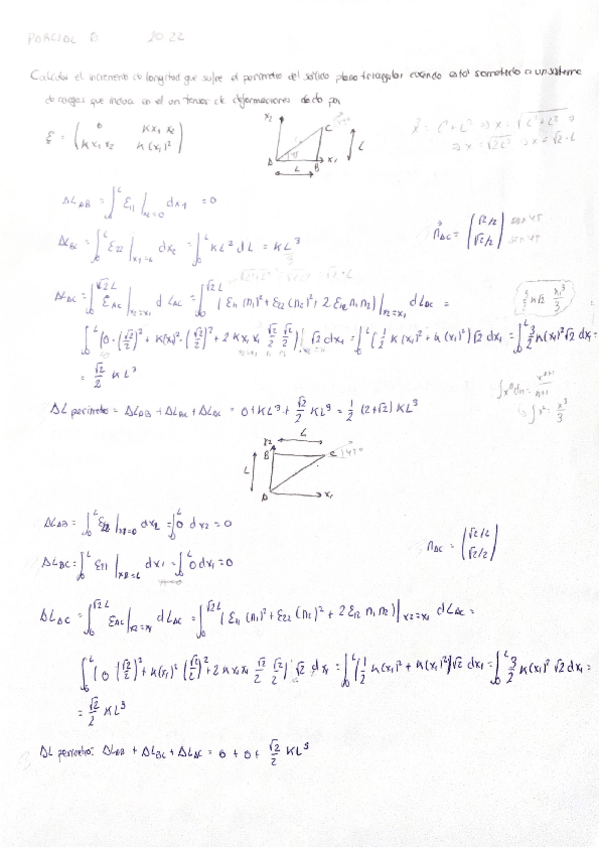 PARCIAL B 2022
Calcular el incremento de longitud que sufre el perímetro del sólido plano triangular cuando está sometido a un sistema
de cargas que induce en él un tensor de deformaciones dado por
ε = (0 Kx₁x₂ / Kx₁x₂ K(x₁)²)
x₂ C L 45 A L B x₁
x² = L² + L² ⇒ x = √(L² + L²) ⇒
⇒ x = √(2L²) ⇒ x = √2·L
ΔL_AB = ∫₀ᴸ ε₁₁|x₂=0 dx₁ = 0
ΔL_BC = ∫₀ᴸ ε₂₂|x₁=L dx₂ = ∫₀ᴸ KL² dL = KL³
n_AC = (√2/2 / √2/2) sen 45
ΔL_AC = ∫₀^√2L ε_AC|x₂=x₁ dL_AC = ∫₀^√2L (ε₁₁(n₁)² + ε₂₂(n₂)² + 2ε₁₂n₁n₂)|x₂=x₁ dL_AC =
∫₀ᴸ (0·(√2/2)² + K(x₁)²·(√2/2)² + 2Kx₁x₁ √2/2 √2/2) √2 dx₁ = ∫₀ᴸ (1/2 K(x₁)² + K(x₁)²) √2 dx₁ = ∫₀ᴸ 3/2 K(x₁)² √2 dx₁ =
= √2/2 KL³
∫xⁿ dx = xⁿ⁺¹/n+1
∫x² = x³/3
ΔL perímetro = ΔL_AB + ΔL_BC + ΔL_AC = 0 + KL³ + √2/2 KL³ = 1/2 (2+√2) KL³
L x₂ B C L A x₁
ΔL_AB = ∫₀ᴸ ε₂₂|x₁=0 dx₂ = ∫₀ᴸ 0 dx₂ = 0
n_AC = (√2/2 / √2/2)
ΔL_BC = ∫₀ᴸ ε₁₁|x₂=L dx₁ = ∫₀ᴸ 0 dx₁ = 0
ΔL_AC = ∫₀^√2L ε_AC|x₂=x₁ dL_AC = ∫₀^√2L (ε₁₁(n₁)² + ε₂₂(n₂)² + 2ε₁₂n₁n₂)|x₂=x₁ dL_AC =
∫₀ᴸ (0(√2/2)² + K(x₁)²(√2/2)² + 2Kx₁x₁ √2/2 √2/2) √2 dx₁ = ∫₀ᴸ (1/2 K(x₁)² + K(x₁)²) √2 dx₁ = ∫₀ᴸ 3/2 K(x₁)² √2 dx₁ =
= √2/2 KL³
ΔL perímetro: ΔL_AB + ΔL_BC + ΔL_AC = 0 + 0 + √2/2 KL³